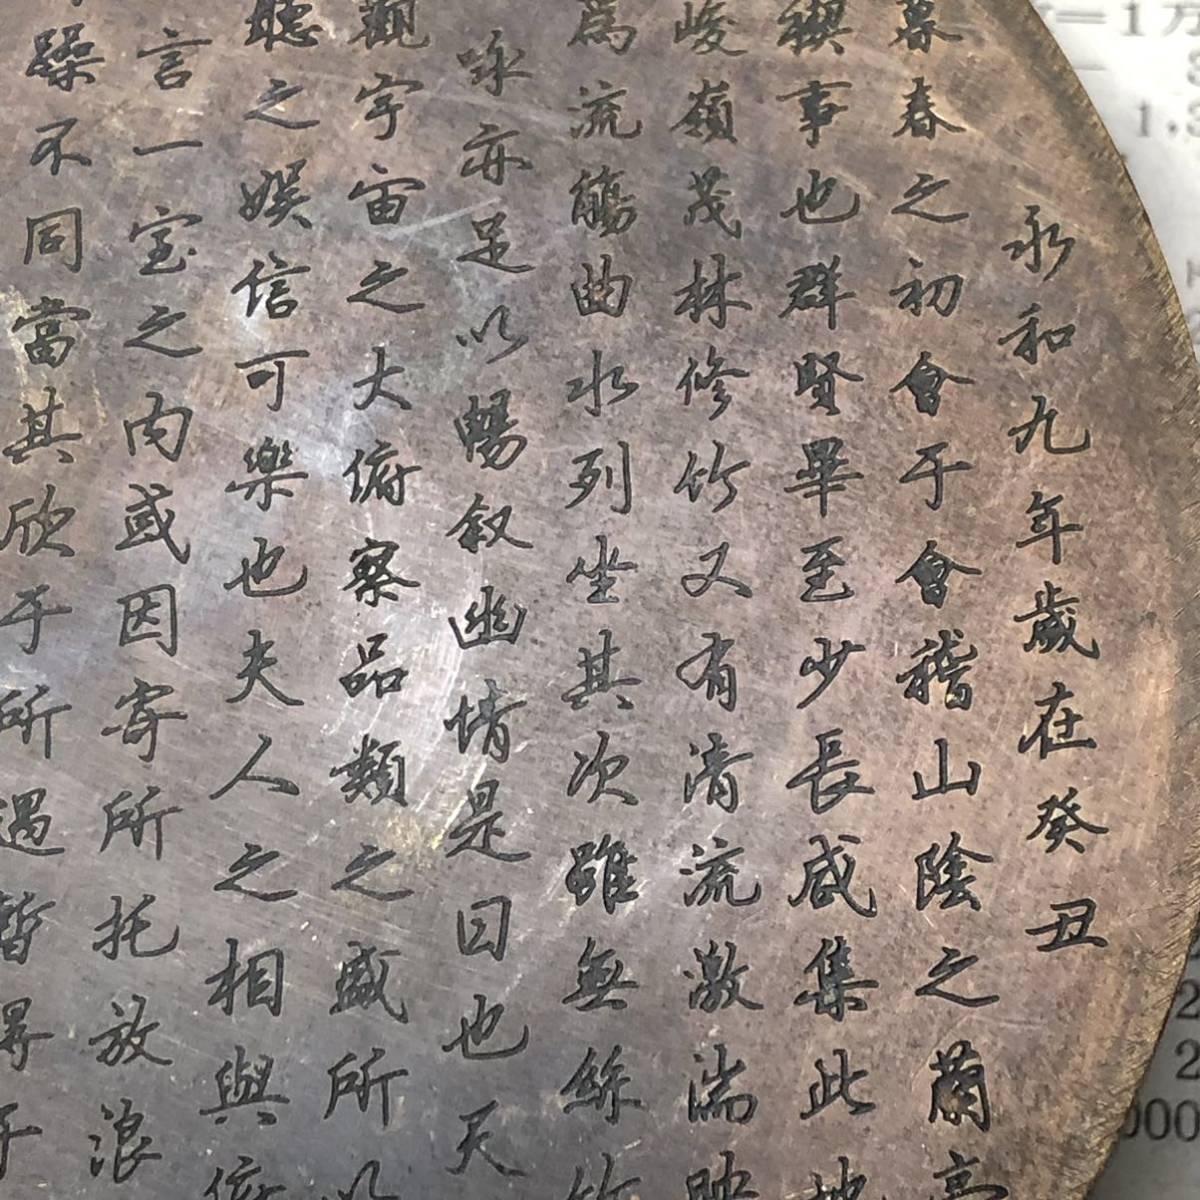 永和九年歲在癸丑
暮春之初會于會稽山陰之蘭亭
禊事也群賢畢至少長咸集此地
峻嶺茂林修竹又有清流激湍映
為流觴曲水列坐其次雖無絲竹
詠亦足以暢叙幽情是日也天
觀宇宙之大俯察品類之盛所以
聽之娛信可樂也夫人之相與俯
言一室之內或因寄所托放浪
躁不同當其欣于所遇暫得于
=1万
1,3
2
2
000